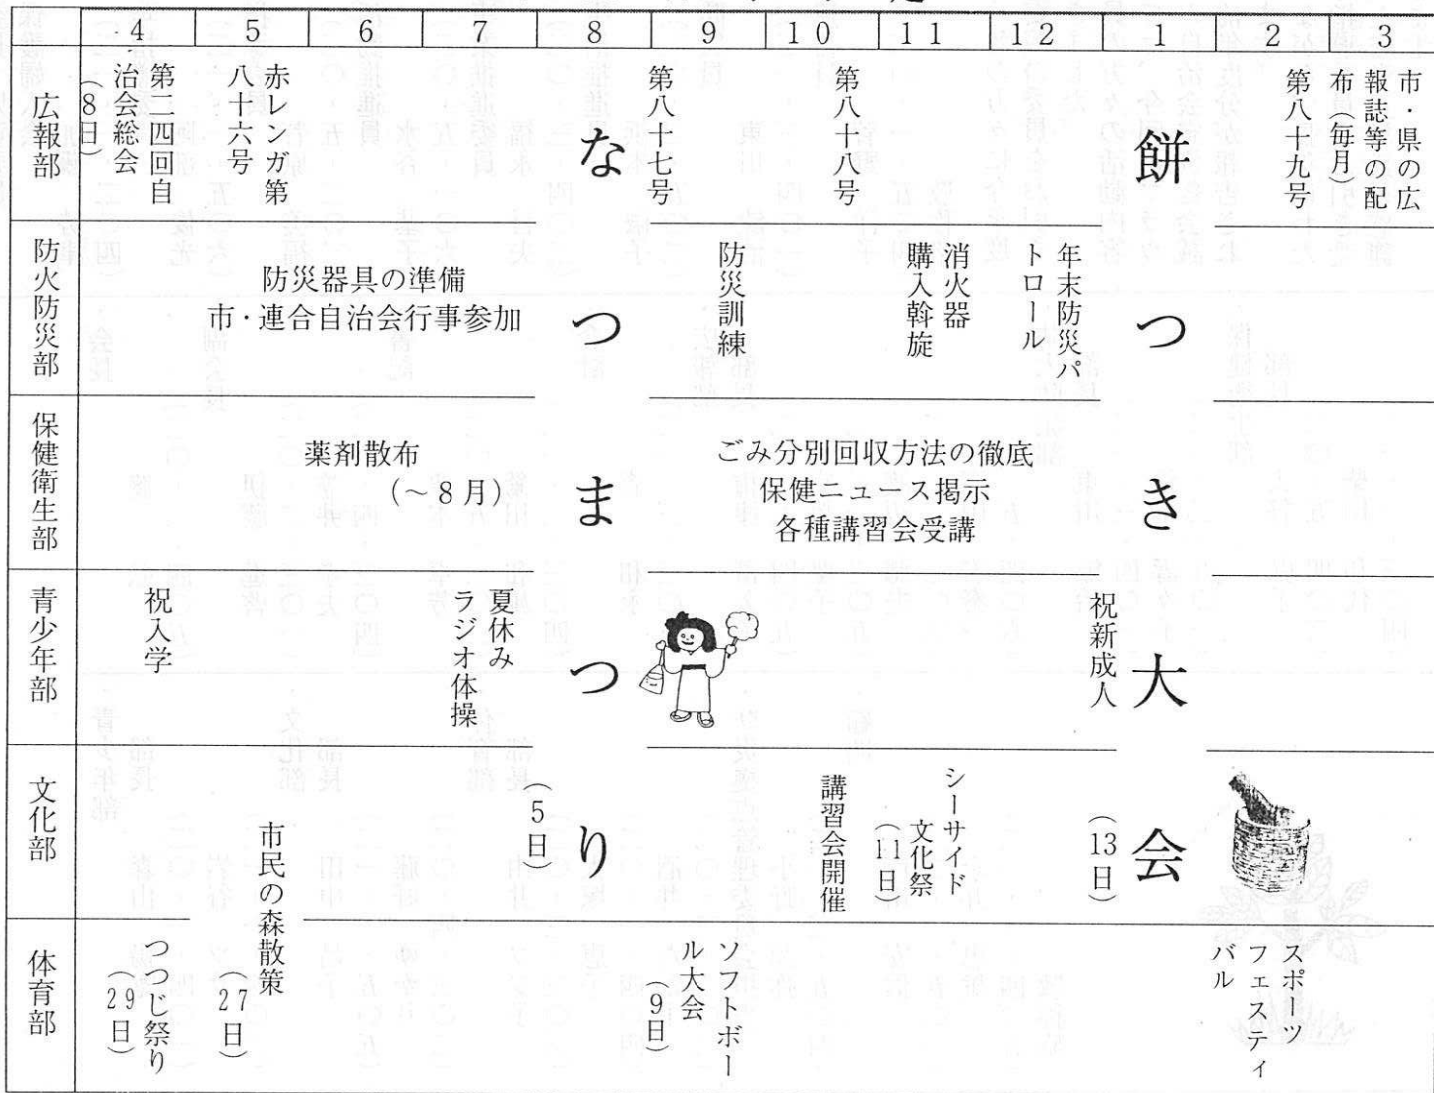 4 5 6 7 8 9 10 11 12 1 2 3
広報部
第二四回自
治会総会
(8日)
赤レンガ第
八十六号
第八十七号
第八十八号
第八十九号
市・県の広
報誌等の配
布(毎月)
防火防災部
防災器具の準備
市・連合自治会行事参加
防災訓練
消火器
購入斡旋
年末防災パ
トロール
保健衛生部
薬剤散布
(〜8月)
ごみ分別回収方法の徹底
保健ニュース掲示
各種講習会受講
青少年部
祝入学
夏休み
ラジオ体操
祝新成人
文化部
市民の森散策
(27日)
なつまつり
(5日)
講習会開催
シーサイド
文化祭
(11日)
餅つき大会
(13日)
体育部
つつじ祭り
(29日)
ソフトボー
ル大会
(9日)
スポーツ
フェスティ
バル